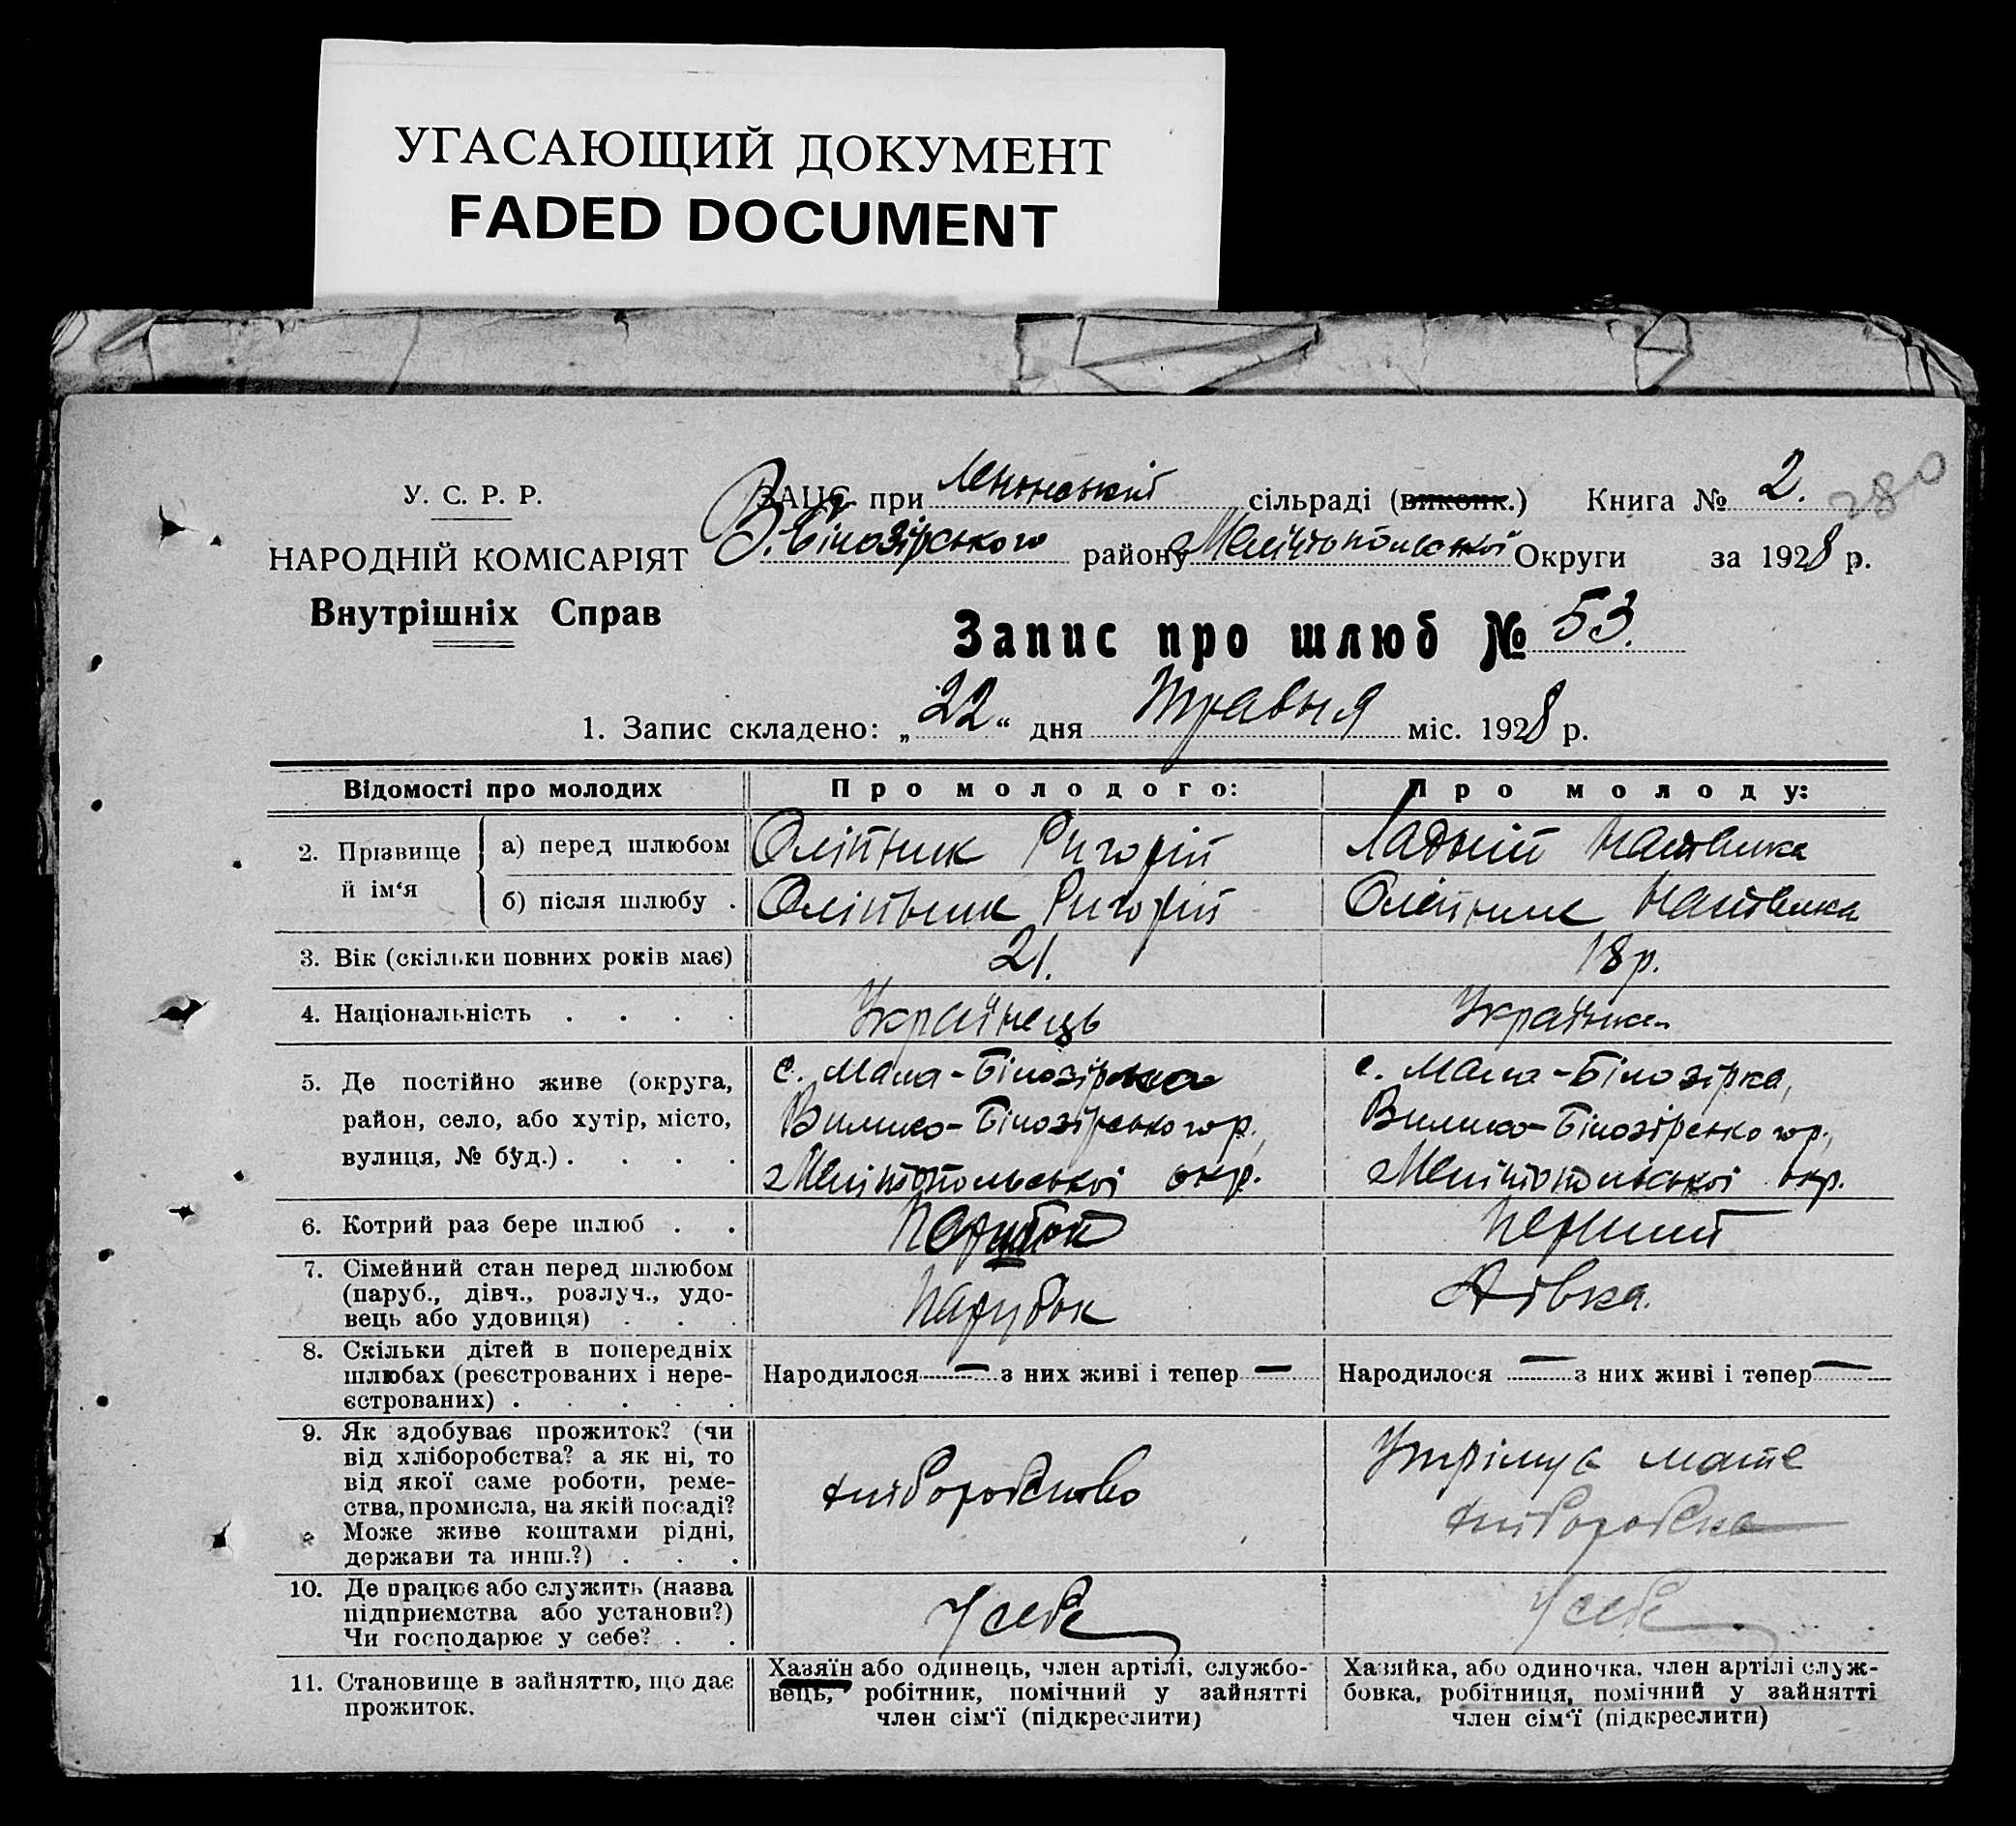 УГАСАЮЩИЙ ДОКУМЕНТ
FADED DOCUMENT
280
У. С. Р. Р.
НАРОДНІЙ КОМІСАРІЯТ
Внутрішніх Справ
ЗАЦС при Менчикській сільраді (виконк.) Книга № 2.
В. Білозірського району Мелітопольської Округи за 1928 р.
Запис про шлюб № 53.
1. Запис складено: „22“ дня травня міс. 1928 р.
Відомості про молодих
Про молодого:
Про молоду:
2. Прізвище й ім‘я
а) перед шлюбом
Олійник Григорій
Ладний Мотвика
б) після шлюбу .
Олійник Григорій
Олейник
3. Вік (скільки повних років має)
21.
18 р.
4. Національність . . . .
Українець
Українка
5. Де постійно живе (округа,
район, село, або хутір, місто,
вулиця, № буд.) . . . .
с. Мала-Білозірка
Вилико-Білозірського р.,
Мелітопольської окр.
с. Мала-Білозірка,
Вилико-Білозірського р.,
Мелітопольської окр.
6. Котрий раз бере шлюб . .
Перший
7. Сімейний стан перед шлюбом
(паруб., дівч., розлуч., удо-
вець або удовиця) . . .
Парубок
Дівка.
8. Скільки дітей в попередніх
шлюбах (реєстрованих і нере-
єстрованих) . . . . .
Народилося — з них живі і тепер —
Народилося — з них живі і тепер —
9. Як здобуває прожиток? (чи
від хліборобства? а як ні, то
від якої саме роботи, реме-
ства, промисла, на якій посаді?
Може живе коштами рідні,
держави та инш.?) . . .
хліборобство
Утрімує мате
хліборобка
10. Де працює або служить (назва
підприємства або установи?)
Чи господарює у себе? . .
У себе
У себе
11. Становище в зайняттю, що дає
прожиток.
Хазяїн або одинець, член артілі, службо-
вець, робітник, помічний у зайнятті
член сім‘ї (підкреслити)
Хазяйка, або одиночка, член артілі служ-
бовка, робітниця, помічний у зайнятті
член сім‘ї (підкреслити)